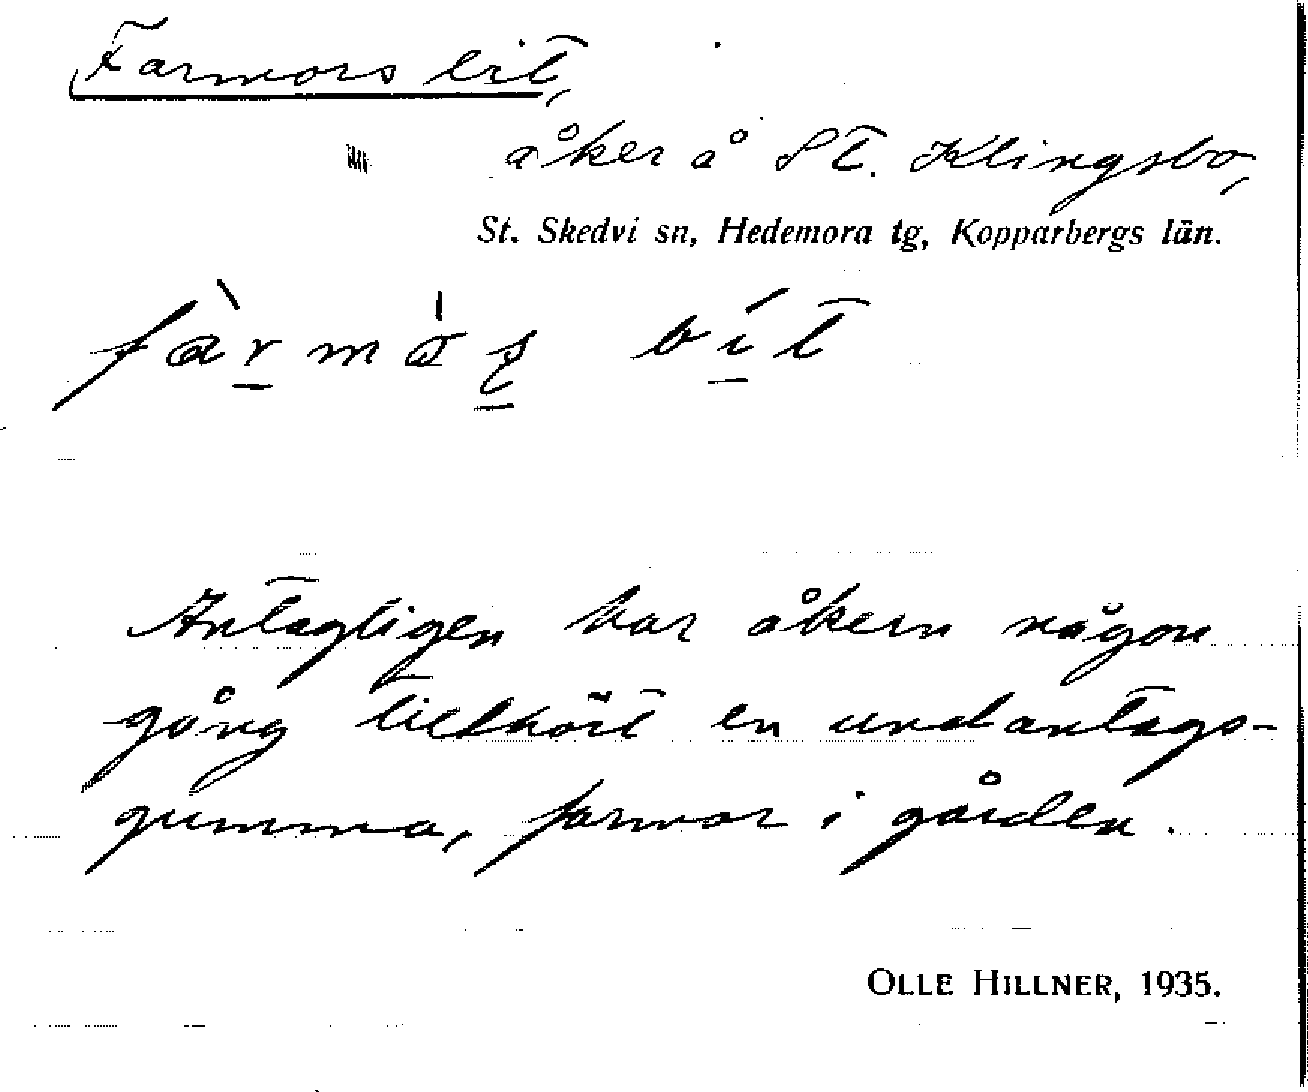 Farmors bit,
åker å St. Klingsbo,
St. Skedvi sn, Hedemora tg, Kopparbergs län.
bít
Antagligen har åkern någon
gång tillhört en undantags-
gumma, farmor i gården.
OLLE HILLNER, 1935.